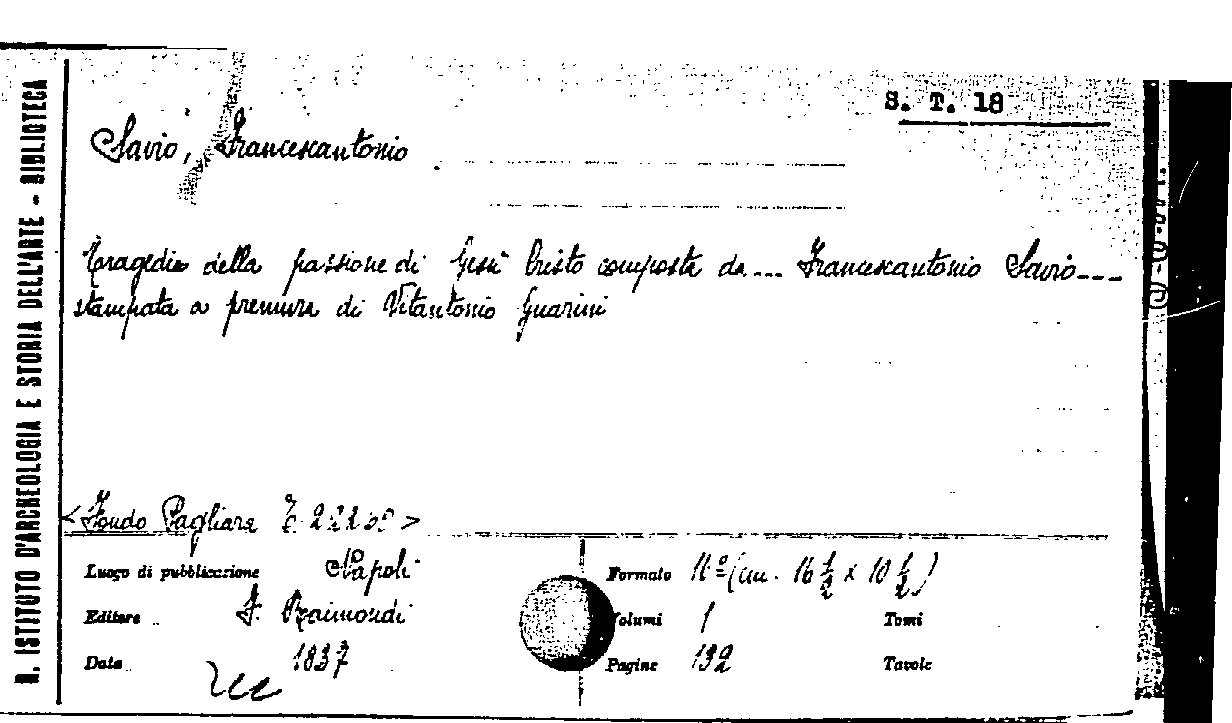 R. ISTITUTO D'ARCHEOLOGIA E STORIA DELL'ARTE - BIBLIOTECA
S. T. 18
Savio, Francescantonio
Tragedia della passione di Gesù Cristo composta da ... Francescantonio Savio ...
stampata a premura di Vitantonio Guarini
<Fondo Pagliara
Luogo di pubblicazione Napoli Formato 16º (cm. 16 ½ x 10 ½)
Editore F. Raimondi Volumi 1 Tomi
Data 1837 Pagine 132 Tavole